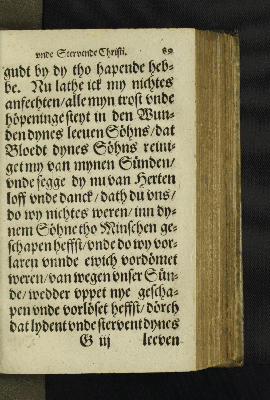 vnde Stervende Christi. 89
gudt by dy tho hapende heb-
be. Nu lathe ick my nichtes
anfechten/alle myn trost vnde
höpeninge steyt in den Wun-
den dynes leeuen Söhns/dat
Bloedt dynes Söhns reini-
get my van mynen Sünden/
vnde segge dy nu van Herten
loff vnde danck/dath du vns/
do wy nichtes weren/inn dy-
nem Söhne tho Minschen ge-
schapen heffst/vnde do wy vor-
laren vnnde ewich vordömet
weren/van wegen vnser Sün-
de/wedder vppet nye gescha-
pen vnde vorlöset heffst/dörch
dat lydent vnde stervent dynes
G iij leeven